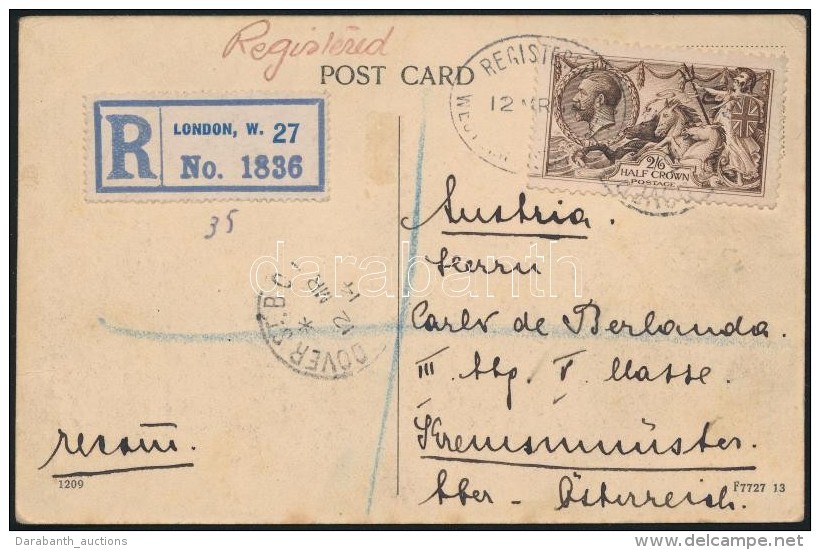 Registered
POST CARD
REGISTERE
12 MR
R
LONDON, W. 27
No. 1836
35
2/6
HALF CROWN
POSTAGE
Austria.
Herrn
Carlo de Berlanda.
III. Abg. V. Klasse.
Kremsmünster.
Ober-Österreich.
DOVER ST. B.O.
12 MR
14
recom.
1209
F7727 13
darabanth
Darabanth_auctions
delcampe.net